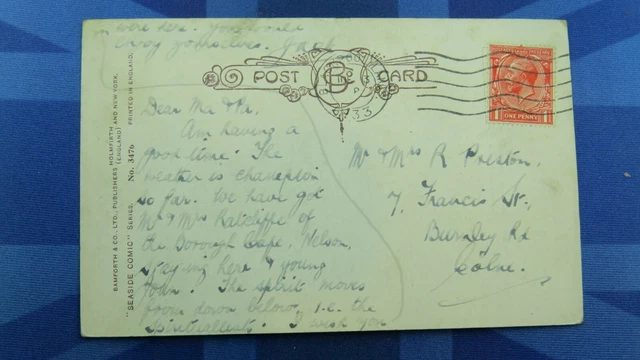 were here. You would
enjoy yourselves. Jack
POST CARD
33
ONE PENNY
Dear Ma & Pa,
Am having a
good time. The
weather is champion
so far. We have got
Mr & Mrs Ratcliffe of
the Borough Cafe, Nelson,
staying here & young
John. The spirit moves
from down below, i.e. the
Spiritualists. I wish you
Mr & Mrs R Preston.
7, Francis St.,
Burnley Rd
Colne.
BAMFORTH & CO., LTD., PUBLISHERS (ENGLAND) HOLMFIRTH AND NEW YORK.
"SEASIDE COMIC" SERIES. No. 3476 PRINTED IN ENGLAND.